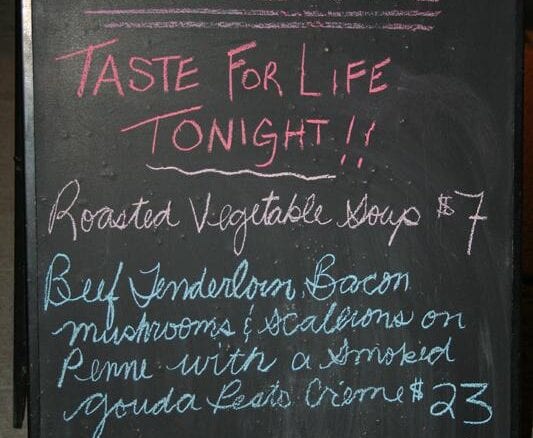 TASTE FOR LIFE
TONIGHT!!
Roasted Vegetable Soup $7
Beef Tenderloin, Bacon
mushrooms & scalerons on
Penne with a smoked
gouda Pesto Crème $23